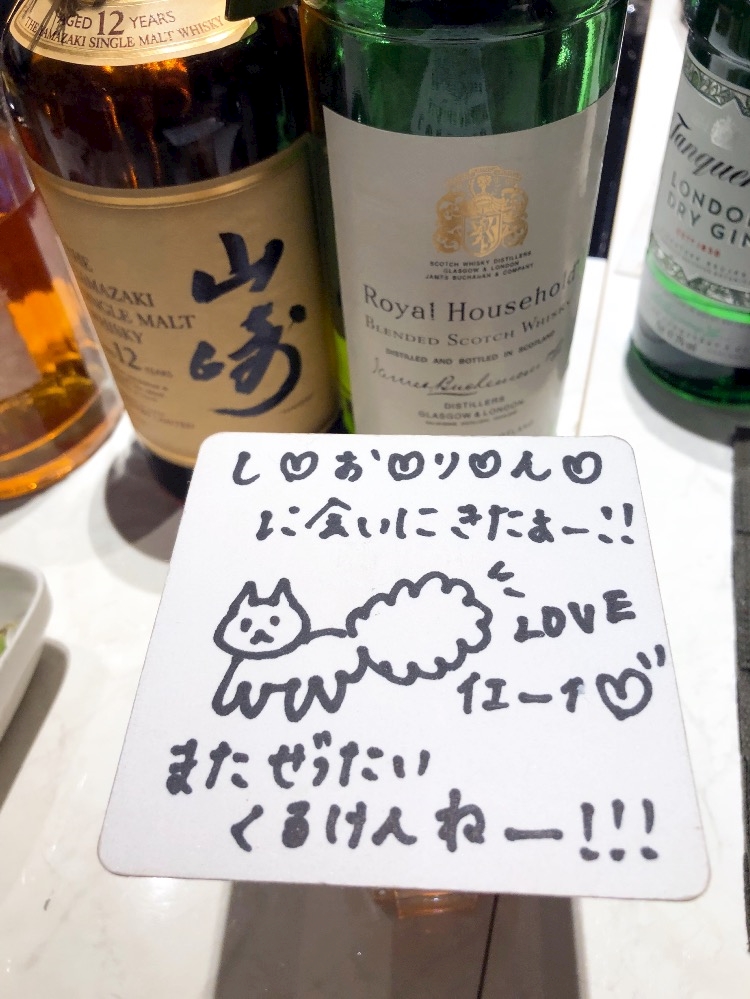 AGED 12 YEARS
THE YAMAZAKI SINGLE MALT WHISKY
YAMAZAKI
SINGLE MALT
WHISKY
12 YEARS
山崎
SCOTCH WHISKY DISTILLERS
GLASGOW & LONDON
JAMES BUCHANAN & COMPANY
Royal Household
BLENDED SCOTCH WHISKY
DISTILLED AND BOTTLED IN SCOTLAND
James Buchanan
DISTILLERS
GLASGOW & LONDON
LONDON
DRY GIN
し♡お♡り♡ん♡
に会いにきたよー!!
LOVE
イエーイ♡
またぜったい
くるけんねー!!!